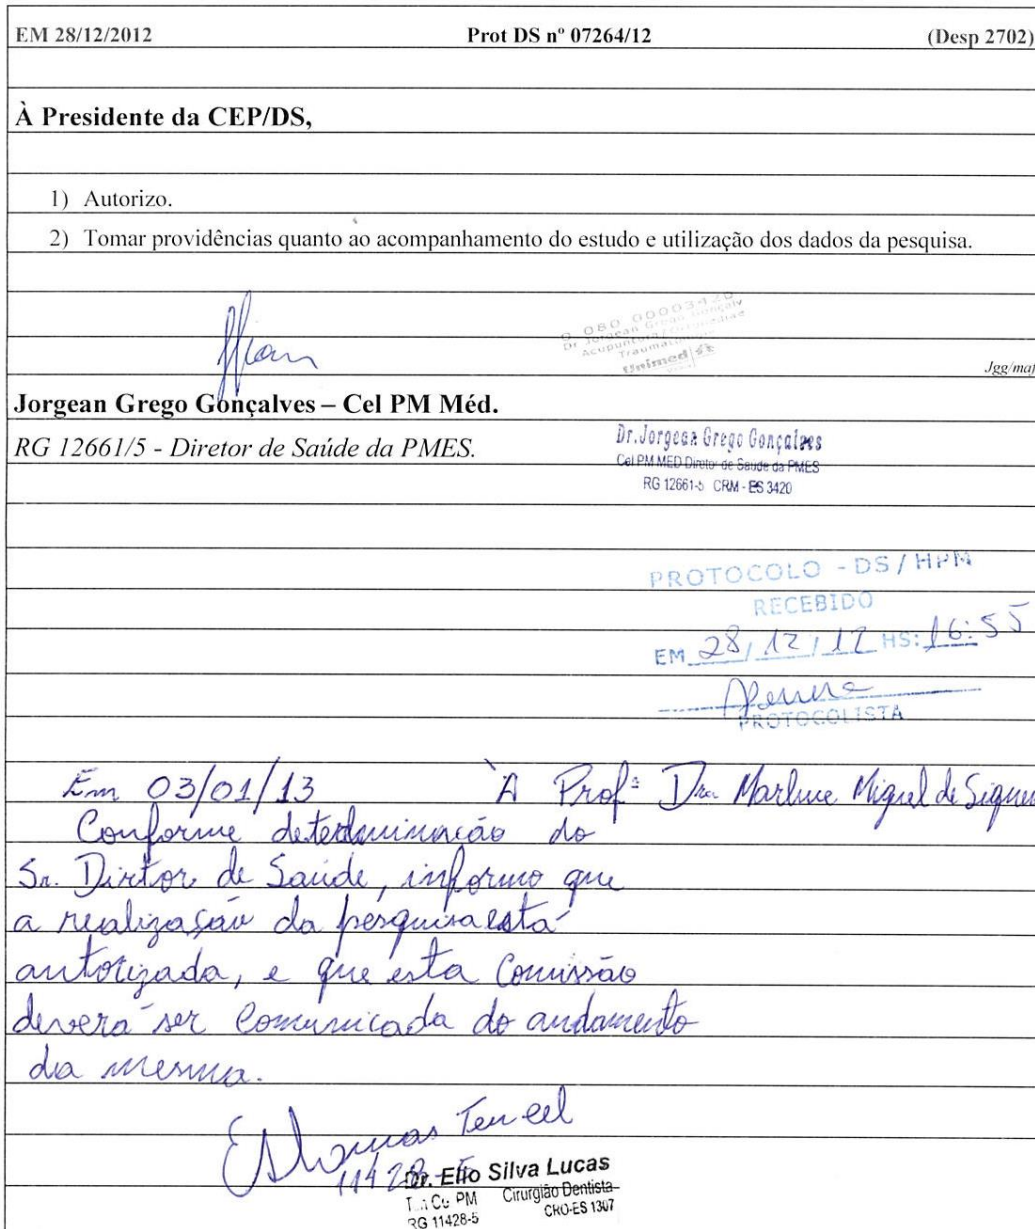 EM 28/12/2012 Prot DS nº 07264/12 (Desp 2702)
À Presidente da CEP/DS,
1) Autorizo.
2) Tomar providências quanto ao acompanhamento do estudo e utilização dos dados da pesquisa.
Unimed
Jgg/maf
Jorgean Grego Gonçalves – Cel PM Méd.
RG 12661/5 - Diretor de Saúde da PMES.
Dr. Jorgean Grego Gonçalves
Cel PM MED Diretor de Saúde da PMES
RG 12661-5 CRM - ES 3420
PROTOCOLO - DS / HPM
RECEBIDO
EM 28/12/12 HS: 16:55
PROTOCOLISTA
Em 03/01/13 À Profª Dra. Marluce Miguel de
Conforme determinação do
Sr. Diretor de Saúde, informo que
a realização da pesquisa está
autorizada, e que esta Comissão
deverá ser comunicada do andamento
da mesma.
Ten cel
11428-5
Dr. Elio Silva Lucas
PM Cirurgião Dentista
RG 11428-5 CRO-ES 1307